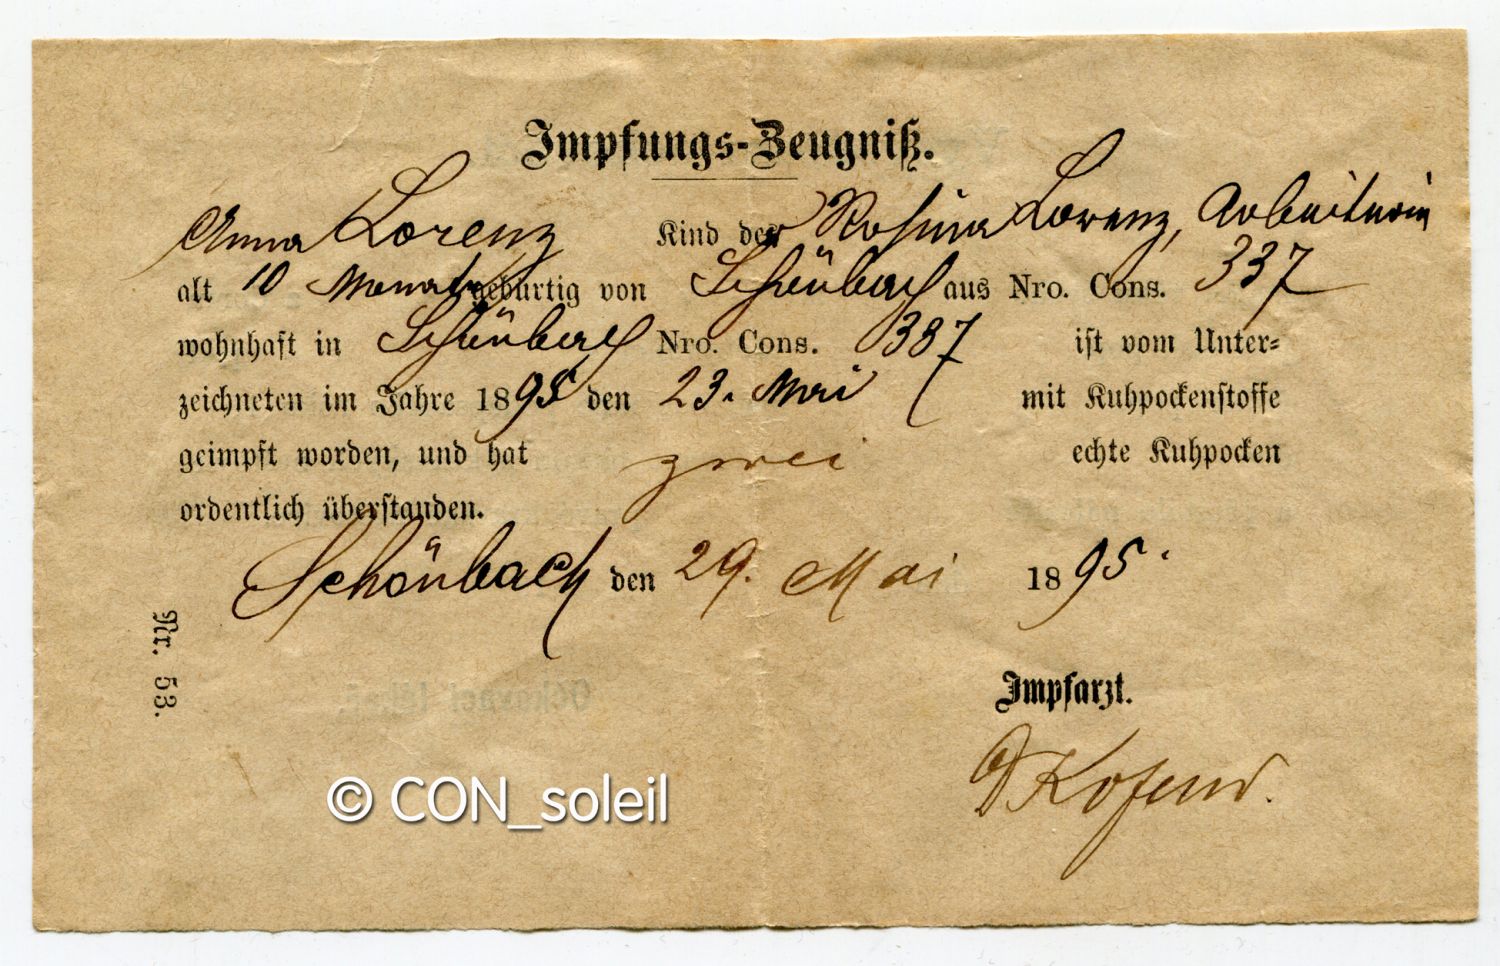 Impfungs-Zeugniß.
Anna Lorenz Kind der Rosina Lorenz, Arbeiterin
alt 10 Monate gebürtig von Schönbach aus Nro. Cons. 337
wohnhaft in Schönbach Nro. Cons. 387 ist vom Unter-
zeichneten im Jahre 1895 den 23. Mai mit Kuhpockenstoffe
geimpft worden, und hat zwei echte Kuhpocken
ordentlich überstanden.
Schönbach den 29. Mai 1895.
Nr. 53.
Impfarzt.
© CON_soleil